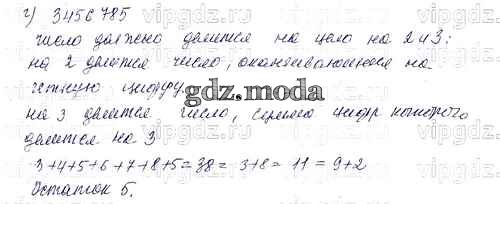 г) 3456785
число должно делится на цело на 2 и 3:
на 2 делится число, оканчивающиеся на
четную цифру.
gdz.moda
на 3 делится число, сумма цифр которого
делится на 3
3+4+5+6+7+8+5=38= 3+8= 11 = 9+2
Остаток 5.
vipgdz.com